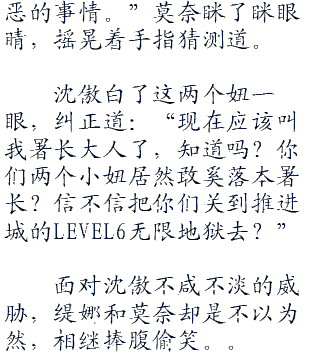 恶的事情。”莫奈眯了眯眼
睛，摇晃着手指猜测道。
沈傲白了这两个妞一
眼，纠正道：“现在应该叫
我署长大人了，知道吗？你
们两个小妞居然敢奚落本署
长？信不信把你们关到推进
城的LEVEL6无限地狱去？”
面对沈傲不咸不淡的威
胁，缇娜和莫奈却是不以为
然，相继捧腹偷笑。。